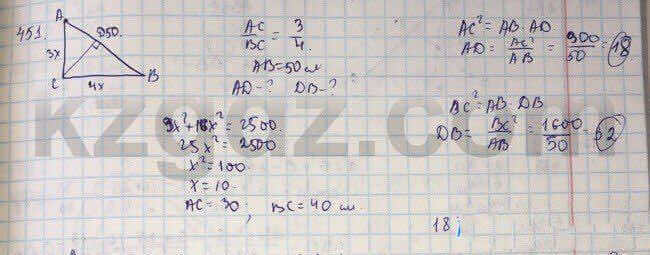 451.
A
D50.
3x
C
4x
B
AC/BC = 3/4.
AB=50см
AD-? DB-?
9x²+16x²=2500.
25x²=2500
x²=100
x=10.
AC=30; BC=40 см.
AC²=AB·AD
AD=AC²/AB=900/50=18
BC²=AB·DB
DB=BC²/AB=1600/50=32
18;
kzgdz.com